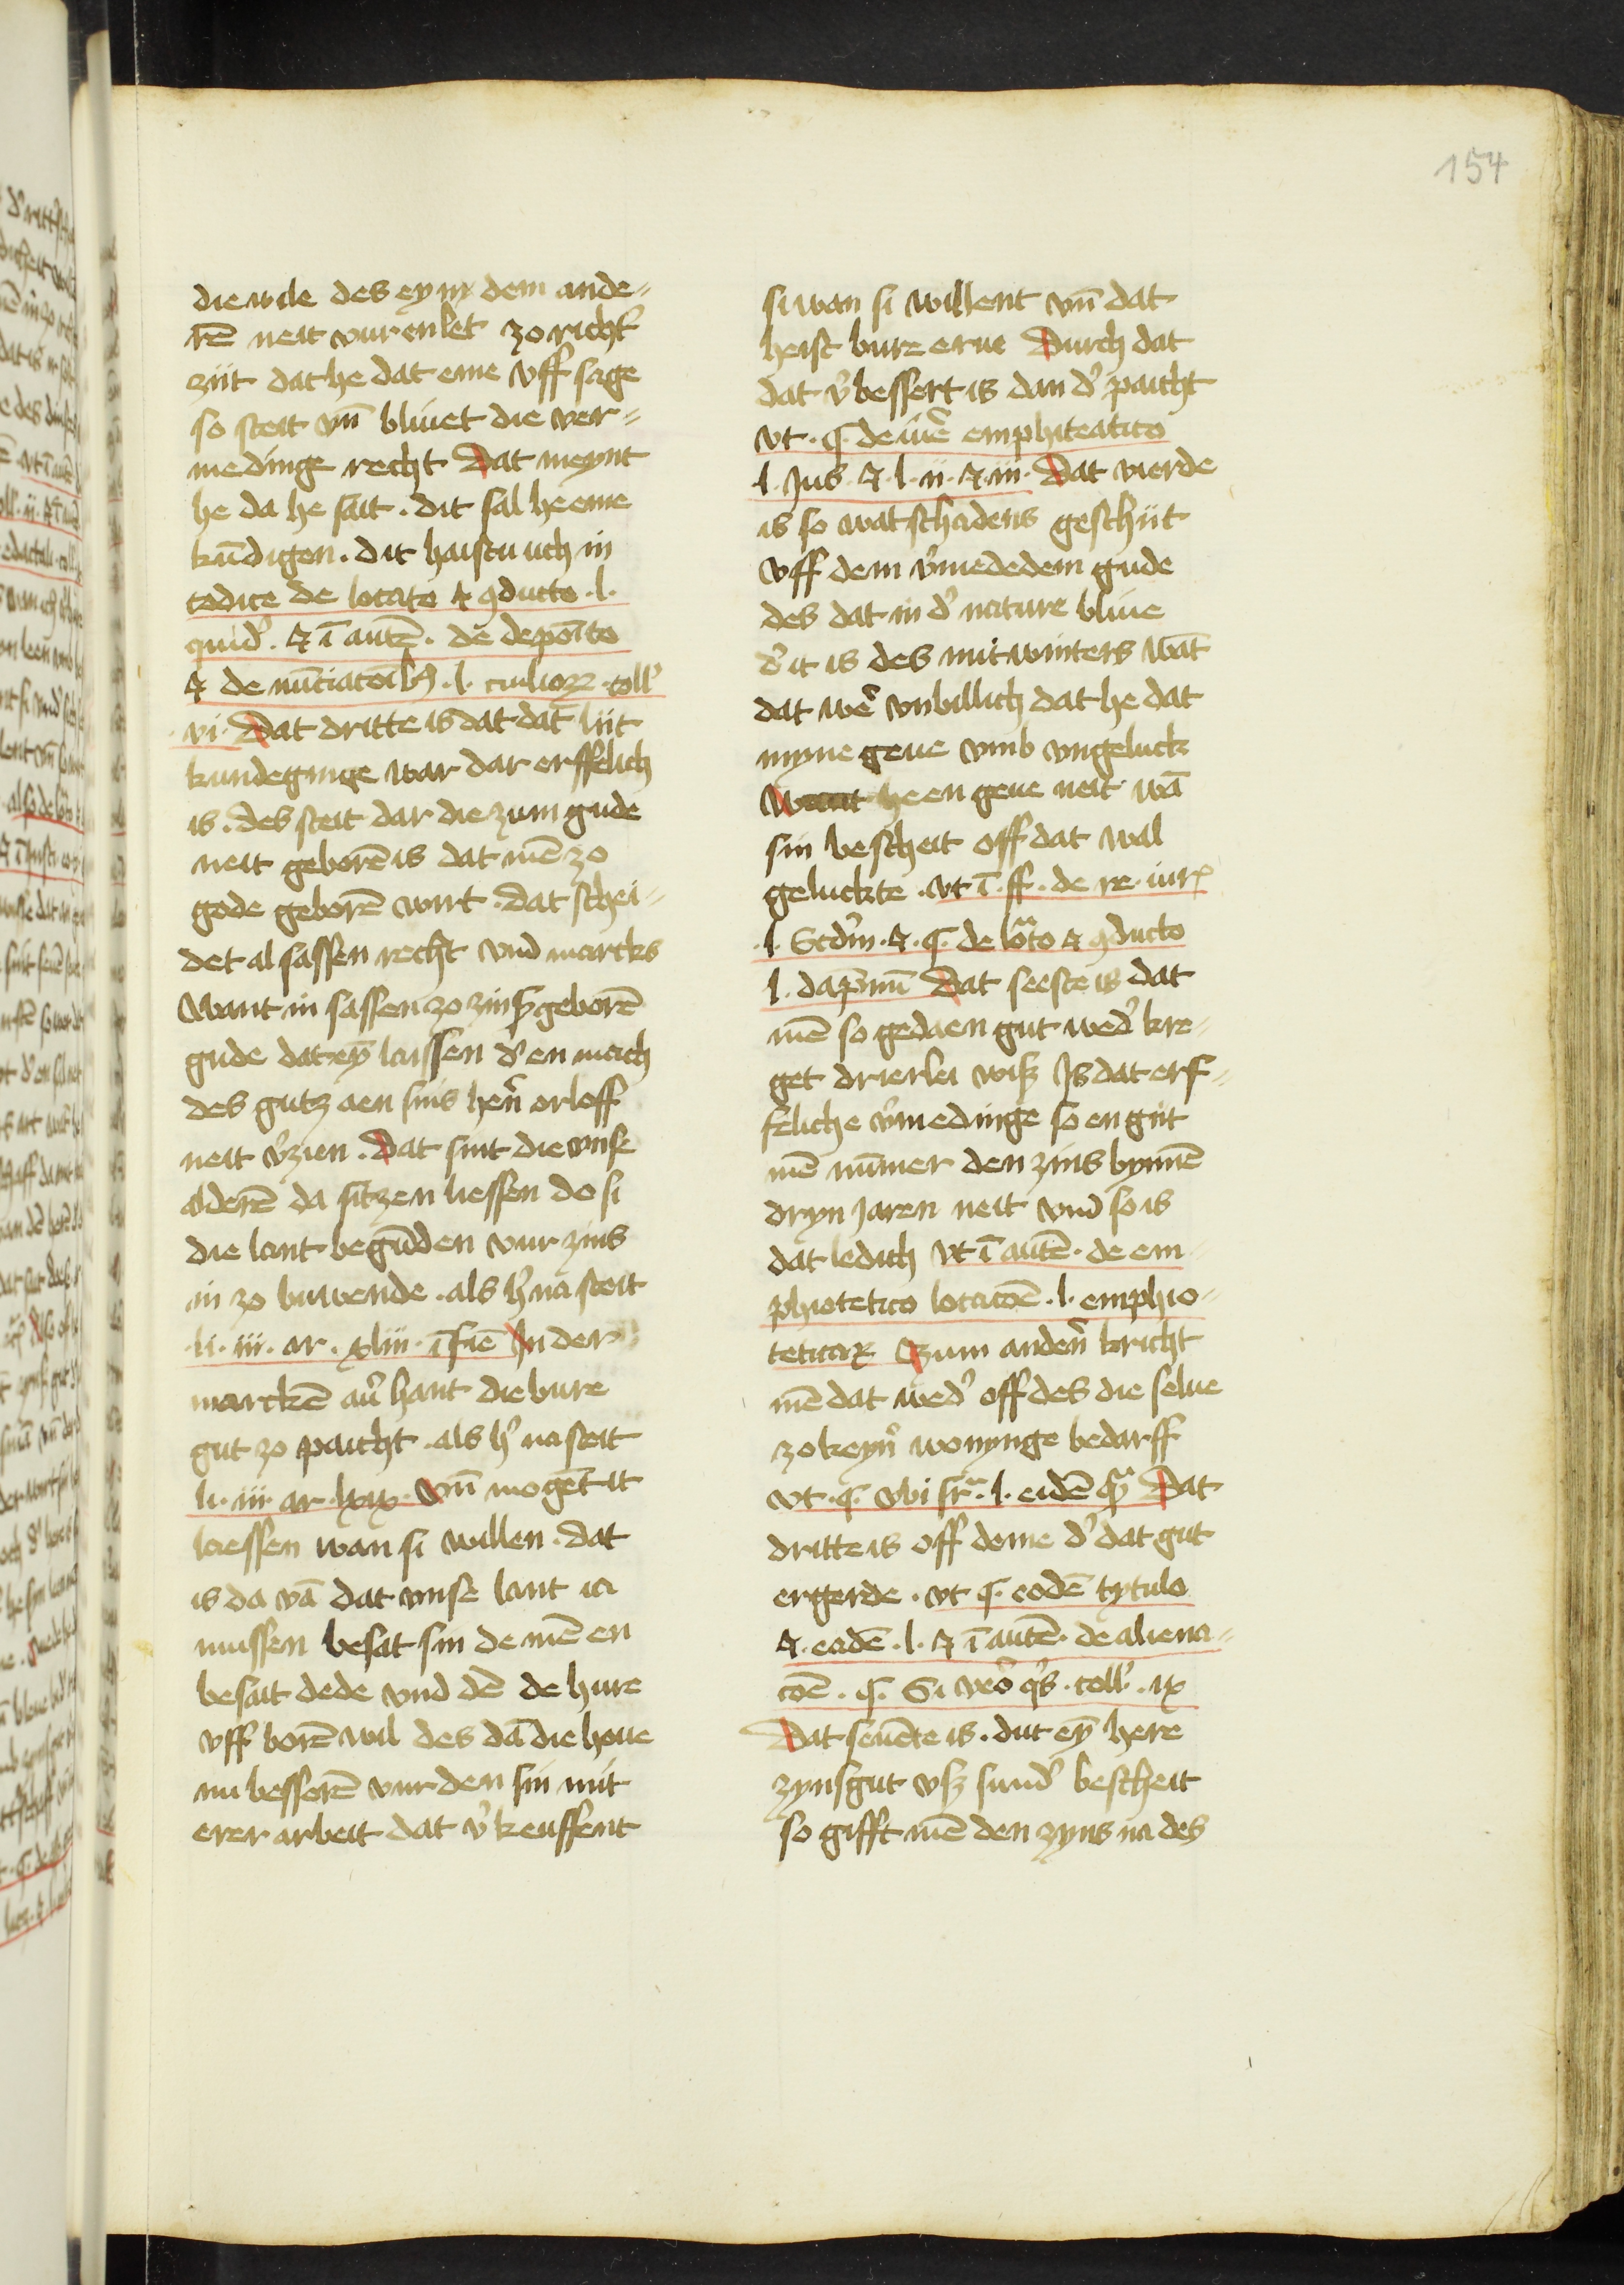 154
die wile des eyny dem ande-
rē neit vur en let zo richt'
ziit dat he dat eme vff sage
so steit vn̄ bliuet die ver-
medinge recht Dat meynt
he da he sait . dit sal he eme
kūdigen . dit haistu uch in
codice de locato et ꝯducto . l .
quid' . et ī autē . de depoīto
et de nūciatoīb9 . l . coll'
vi . Dat dritte is dat dat liit
kundeginge war dar erffelich
is . des steit dar die zum gude
neit geborē is dat mē zo
gode geborē wirt . dat schei-
det al sassen recht vnd marcks
Want in sassen zo zinsz geborē
gude dat ey̅ laissen d' en mach
des gutz aen sins hēn orloff
neit v'zien . Dat sint die vnse
alderē da sitzen liessen do si
die lant begūden vur zins
in zo buwende . als h' na steit
li . iii . ar . xliiii . ī fine In der
marckē au' hant die bure
gut zo paicht . als h' na steit
li . iii . ar . lxxix . Vn̄ mogēt it
laessen wan si willen . dat
is da vā dat vnse lant ia
mussen besat sin de mē en
besait dede vnd dē de hure
vff borē wil des dā die houe
nu besserē vur den sin mit
erer arbeit dat v'keuffent
si wan si willent vn̄ dat
heist bure erue Durch dat
dat v'bessert is dan d' paicht
vt . C . de iure emphiteatico
l . Jus . et . l . ii . et . iii . Dat vierde
is so wat schadens geschiit
vff dem v'mededem gude
des dat in d' nature bliue
d' it is des mitwinters wāt
dat wer' vnbillich dat he dat
myne geue vmb vngeluck
he en geue neit wā
sin bescheit off dat wal
geluckte . vt ī . ff . de re . iur'
. l . Scd'm . et . C . de locato et ꝯducto
l . dāpnū Dat seeste is dat
mē so gedaen gut wed' kre-
get drierlei wisz Js dat erf-
feliche v'medinge so en giit
mē nūmer den zins bynnē
dryn Jaren neit vnd so is
dat ledich vt ī autē . de em-
phiotetico locatoē . l . emphio-
teticar Zum andern̄ kricht
mē dat wed' off des die selue
zo keyn' wonynge bedarff
vt . C . vbi sr̄ . l . eidē qr̄ Dat
dritte is off deme d' dat gut
ergerde . vt C . eodē tytulo
et . eadē . l . et ī autē . de aliena-
coē . C . Si vero q's . coll' . ix
Dat seuēte is . dut ey̅ here
zynsgut vsz sund' bescheit
so gifft mē den zyns na des